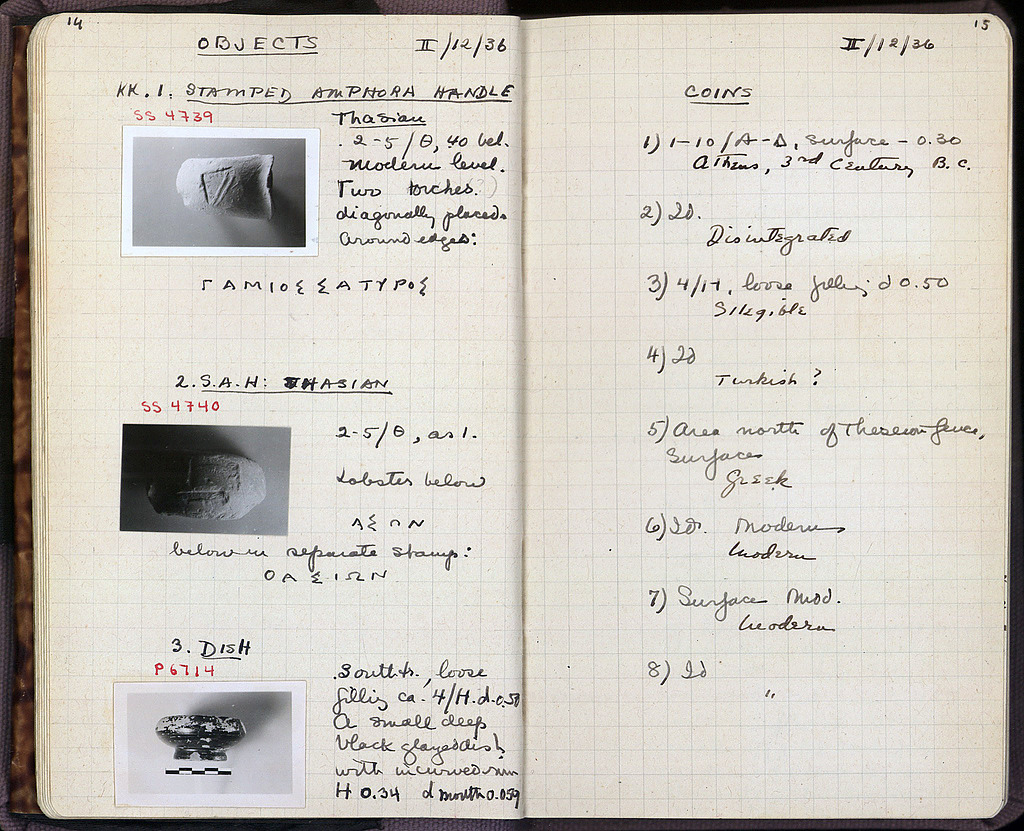 14
OBJECTS II/12/36
KK. 1. STAMPED AMPHORA HANDLE
SS 4739
Thasian
. 2-5/Θ, 40 bel.
modern level.
Two torches (?)
diagonally placed.
Around edges:
ΓΑΜΙΟΣ ΣΑΤΥΡΟΣ
2. S.A.H: THASIAN
SS 4740
2-5/Θ, as 1.
Lobster below
ΑΣΩΝ
below in separate stamp:
ΘΑΣΙΩΝ
3. DISH
P 6714
South tr., loose
filling ca. 4/H. d. 0.50
A small deep
black glazed dish
with incurved rim
H 0.34 d mouth 0.059
15
II/12/36
COINS
1) 1-10/A-Δ, Surface - 0.30
Athens, 3rd Century B.C.
2) Id.
Disintegrated
3) 4/H, loose filling d 0.50
Illegible
4) Id
Turkish ?
5) Area north of Theseion fence,
Surface
Greek
6) Id. Modern
Modern
7) Surface Mod.
Modern
8) Id
"